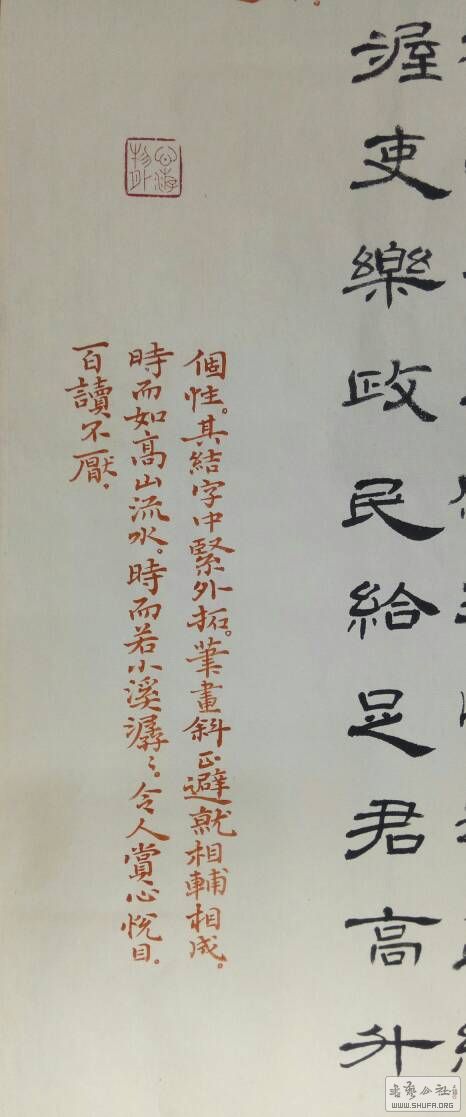 渥吏樂政民給足君高升
個性。其結字中緊外拓。筆畫斜正避就相輔相成。
時而如高山流水。時而若小溪潺〻。令人賞心悅目。
百讀不厭。
書藝公社
WWW.SHUFA.ORG